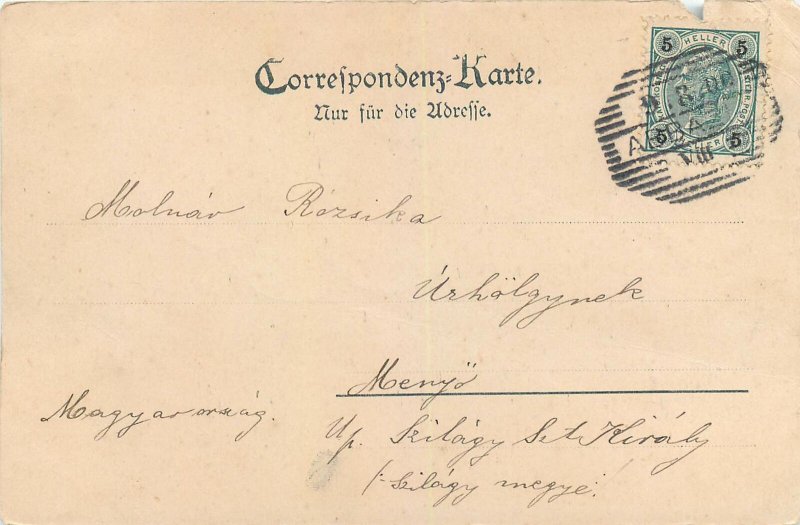 5 HELLER 5
Correspondenz-Karte.
Nur für die Adresse.
5 5
VIII
Molnár Rózsika
Úrhölgynek
Menyő
Magyarország.
Up. Szilágy Szt Király
/: Szilágy megye!